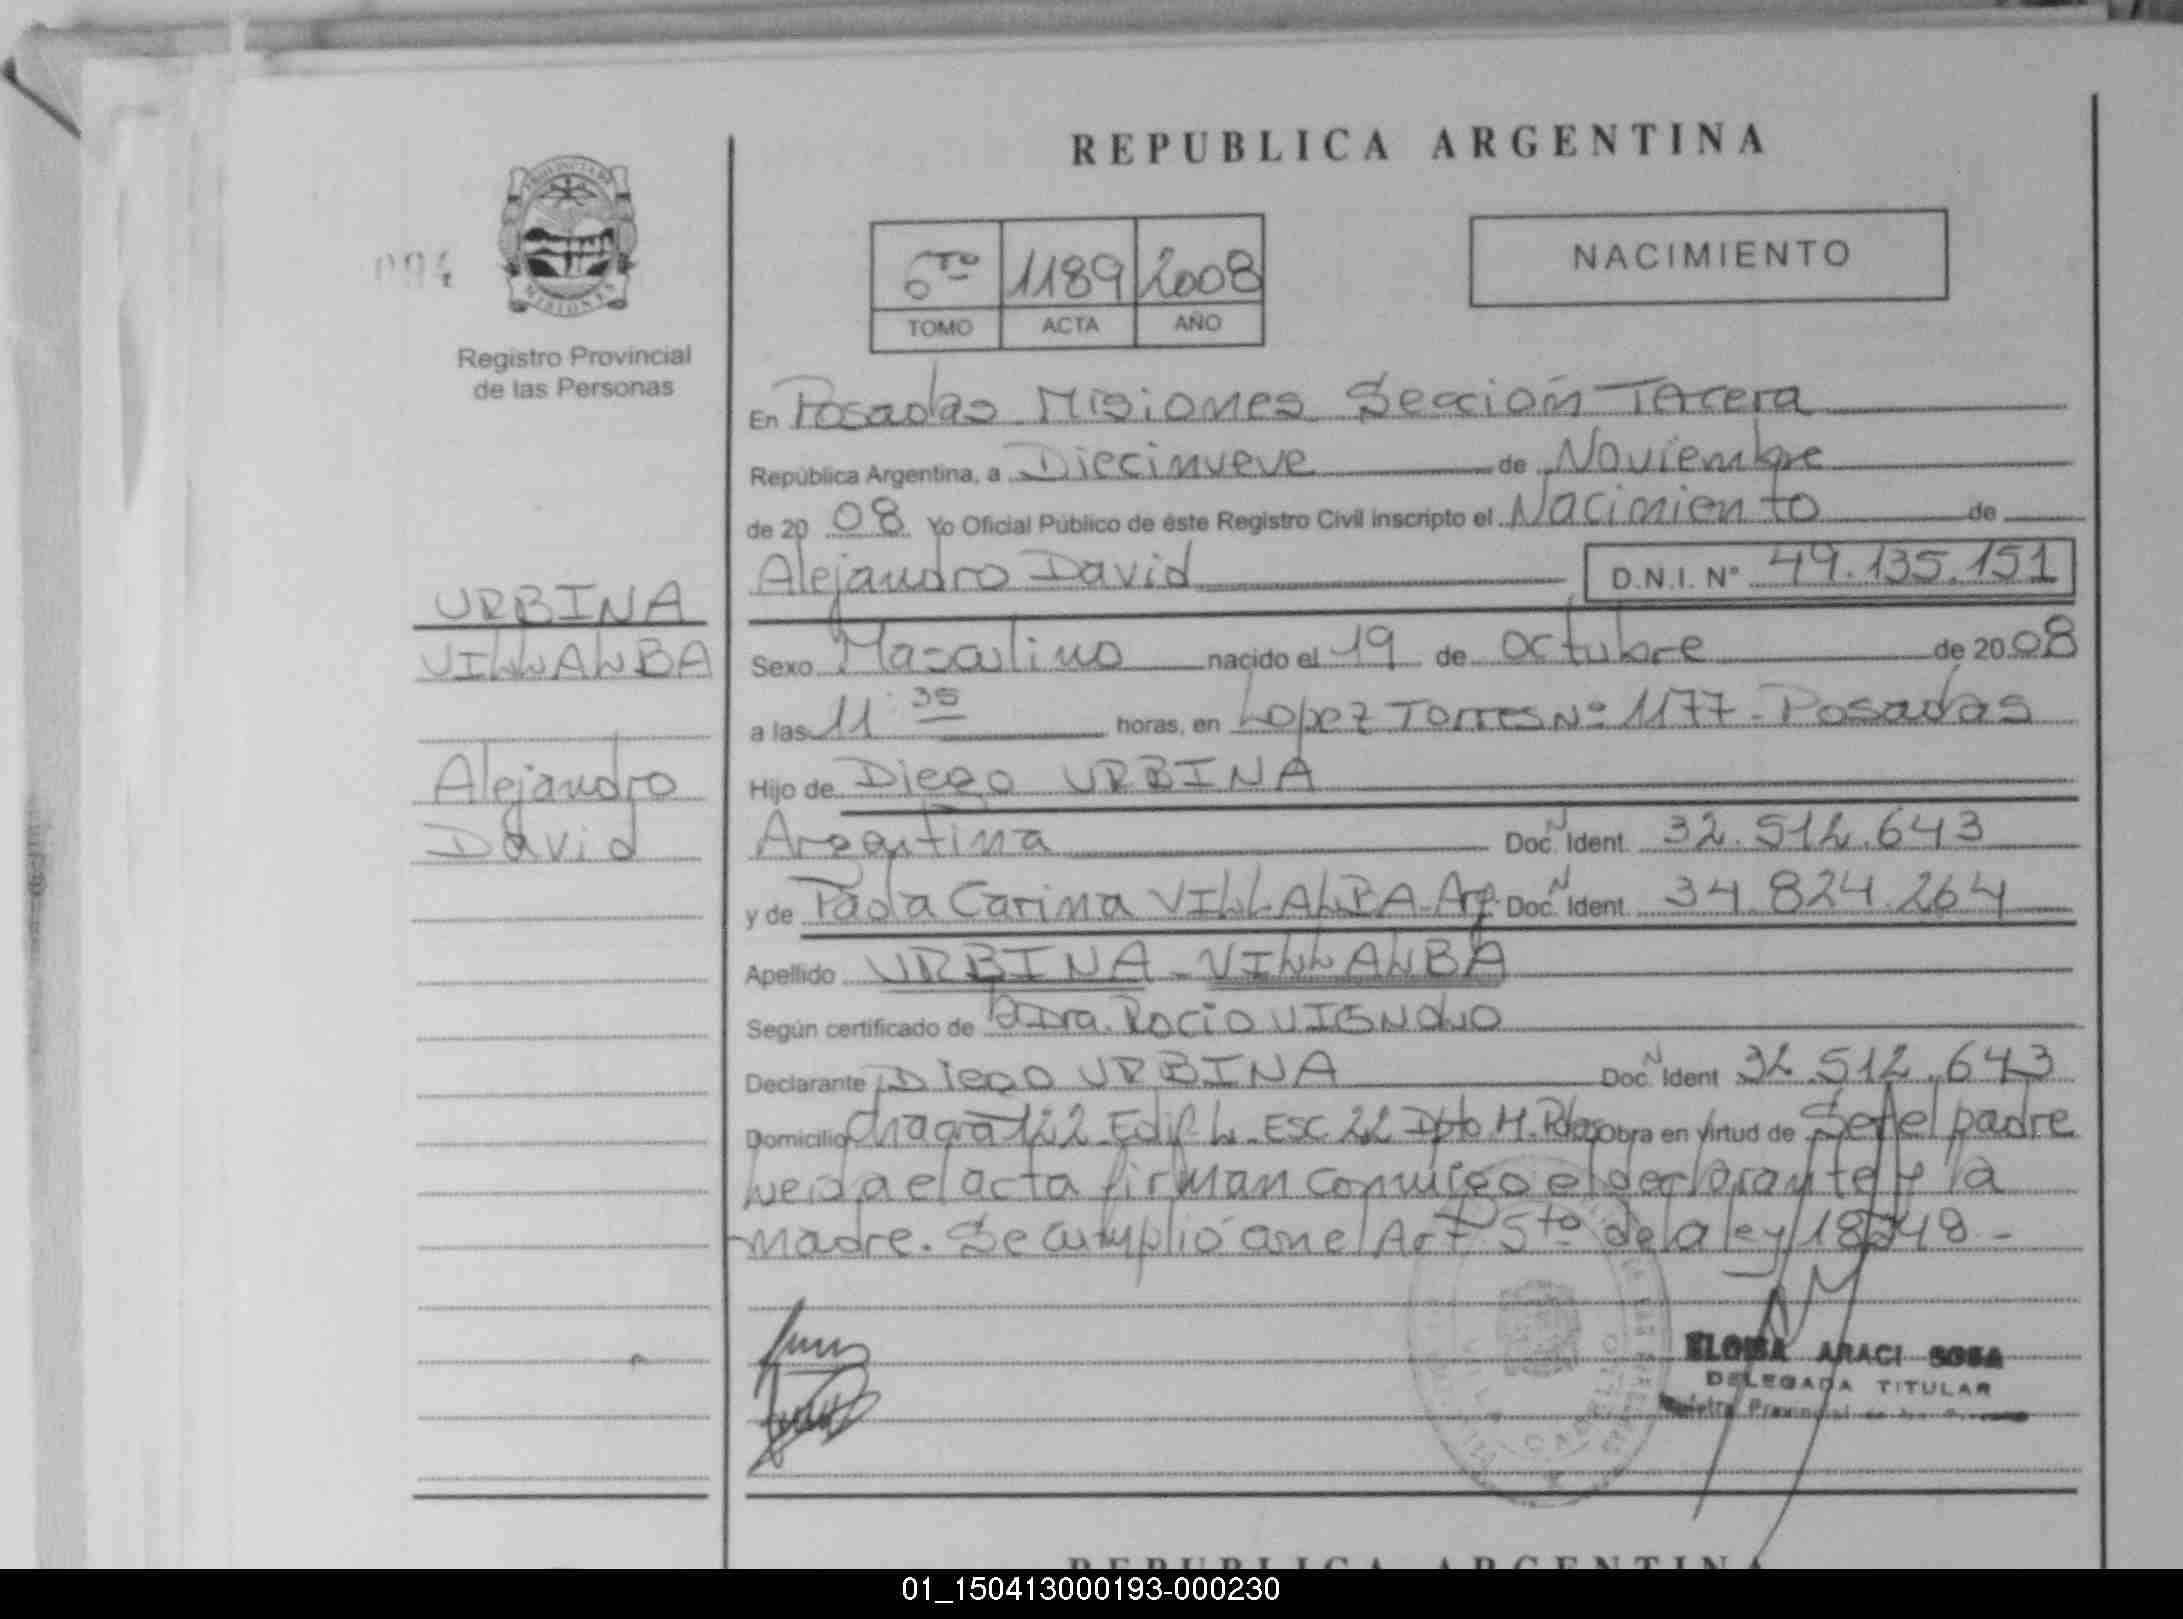 REPUBLICA ARGENTINA
6to 1189 2008
TOMO ACTA AÑO
NACIMIENTO
094
PROVINCIA DE
MISIONES
Registro Provincial
de las Personas
URBINA
VILLALBA
Alejandro
David
En Posadas Misiones Sección Tercera
República Argentina, a Diecinueve de Noviembre
de 2008 Yo Oficial Público de éste Registro Civil inscripto el Nacimiento de
Alejandro David D.N.I. Nº 49.135.151
Sexo Masculino nacido el 19 de octubre de 2008
a las 11 35 horas, en Lopez Torres Nº 1177 - Posadas
Hijo de Diego URBINA
Argentina Doc. N Ident. 32.512.643
y de Paola Carina VILLALBA - Arg. Doc. N Ident. 34.824.264
Apellido URBINA - VILLALBA
Según certificado de Dra. Rocio
Declarante Diego URBINA Doc. N Ident 32.512.643
Domicilio Chacra 122 Edif. L. Esc. 22 Dpto H. Pdas obra en virtud de Ser el padre
leida el acta firman conmigo el declarante y la
madre. Se cumplió con el Art. 5to de la ley 18248.-
ELOISA ARACI SOSA
DELEGADA TITULAR
REPUBLICA ARGENTINA
01_150413000193-000230